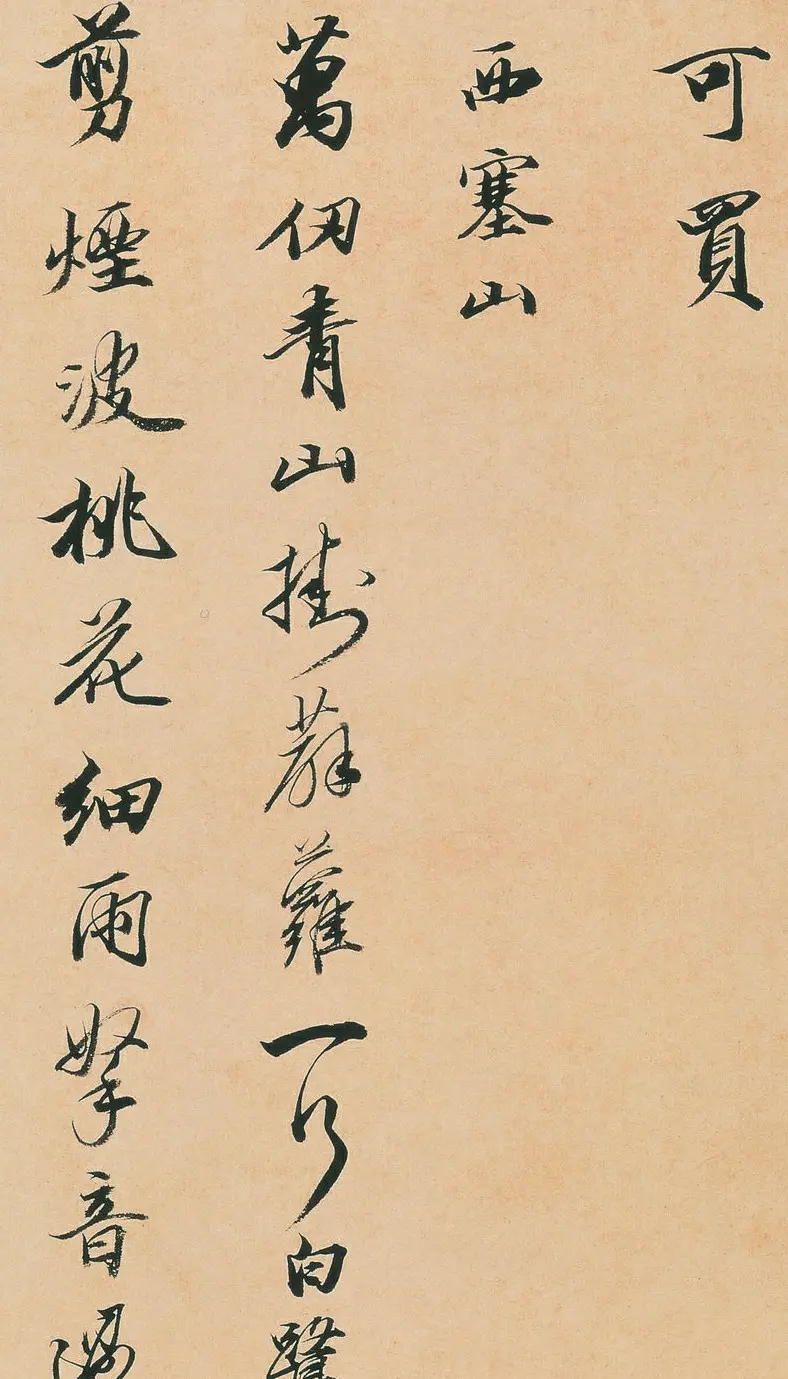 可買
西塞山
萬仞青山掛薜蘿一行白鷺
剪煙波桃花細雨拏音